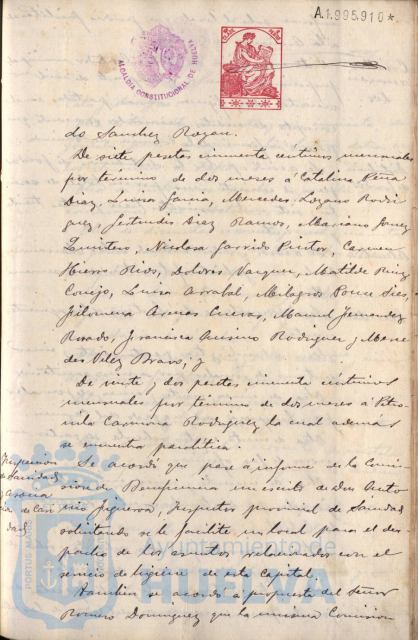 A.1.995.910*
ALCALDIA CONSTITUCIONAL DE HUELVA
do Sanchez Rozan.
De siete pesetas cincuenta céntimos mensuales
por término de dos meses á Catalina Peña
Diaz, Luisa Garcia, Mercedes Lozano Rodri
guez, Gertrudis Diaz Ramos, Mariano Gomez
Quintero, Nicolasa Garrido Pintor, Carmen
Hierro Rios, Dolores Vazquez, Matilde Ruiz
Conejo, Luisa Arrabal, Milagros Ponce
Filomena Arenas Cuevas, Manuel Fernandez
Rosado, Francisca Rodriguez y Merce
des Velez Bravo, y
De veinte y dos pesetas cincuenta céntimos
mensuales por término de dos meses á Petro
nila Carmona Rodriguez la cual además
se encuentra paralítica.
Se acordó que pase á informe de la Comi
sión de Beneficencia un escrito de don Anto
nio Figueroa, Inspector provincial de Sanidad
solicitando se le facilite un local para el des
pacho de los asuntos relacionados con el
servicio de higiene de esta Capital.
Tambien se acordó á propuesta del Señor
Romero Dominguez que la misma Comisión
Inspección
de Sanidad
dad
PORTUS MARIS
Ayuntamiento de
HUELVA